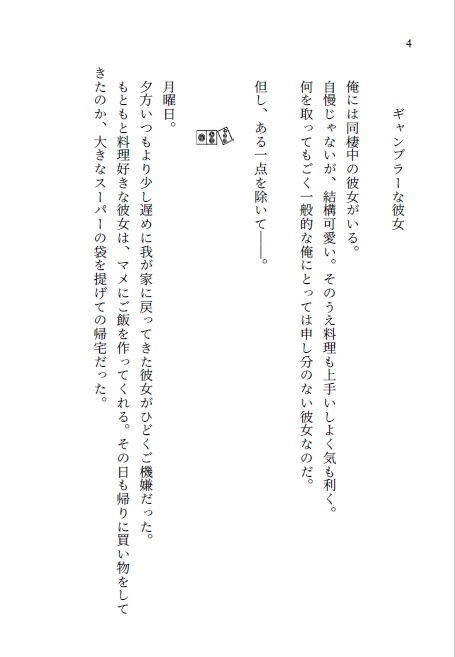 4
ギャンブラーな彼女
俺には同棲中の彼女がいる。
自慢じゃないが、結構可愛い。そのうえ料理も上手いしよく気も利く。
何を取ってもごく一般的な俺にとっては申し分のない彼女なのだ。
但し、ある一点を除いて――。
月曜日。
夕方いつもより少し遅めに我が家に戻ってきた彼女がひどくご機嫌だった。
もともと料理好きな彼女は、マメにご飯を作ってくれる。その日も帰りに買い物をして
きたのか、大きなスーパーの袋を提げての帰宅だった。